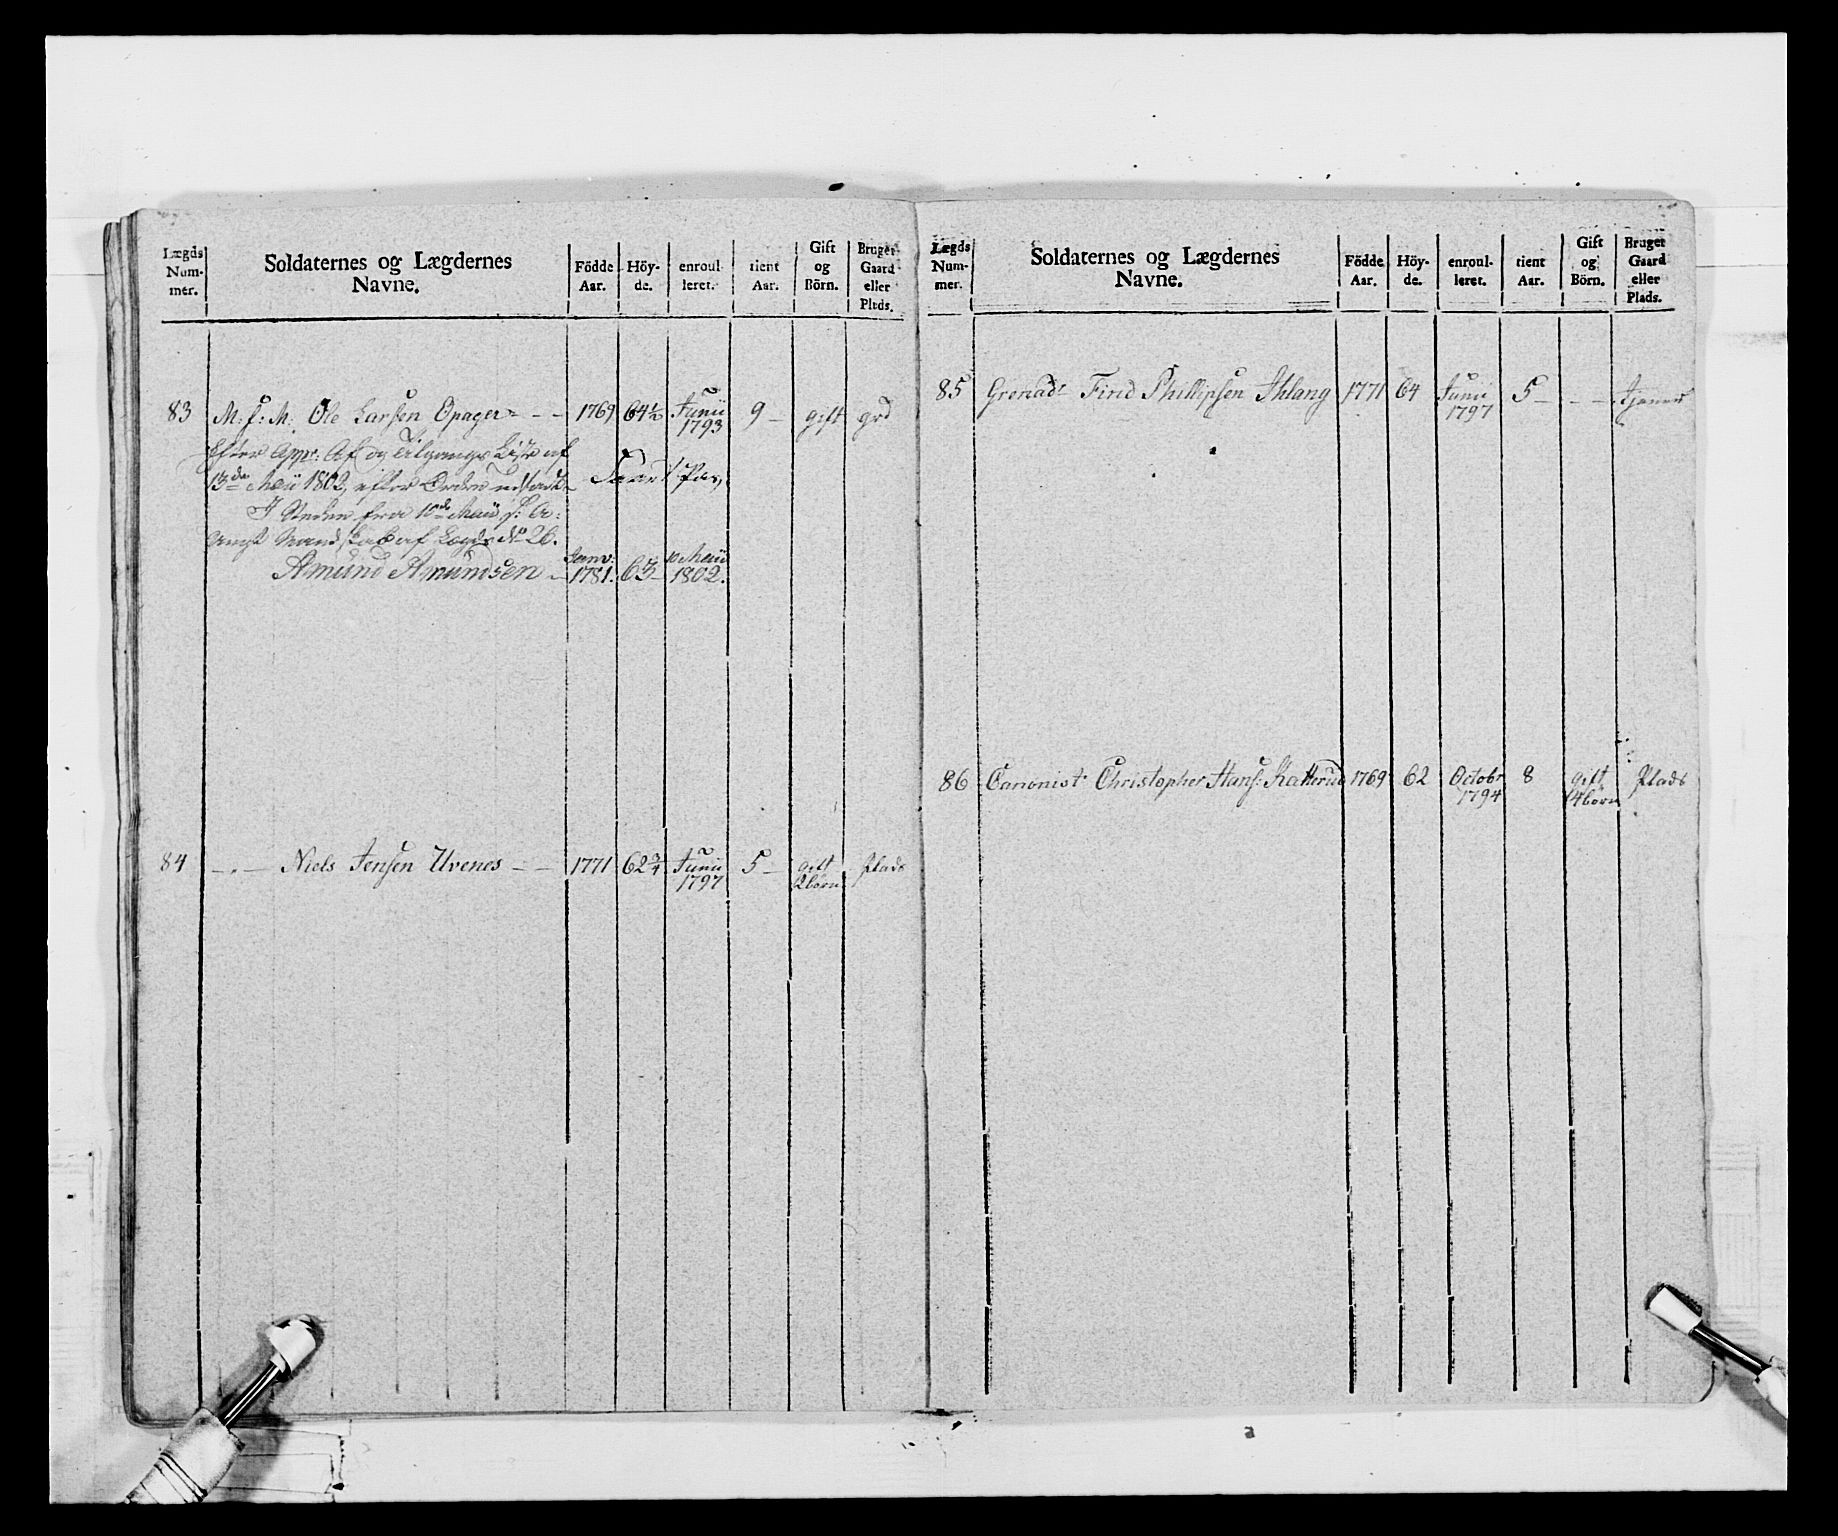 Lægds Num- mer. | Soldaternes og Lægdernes Navne. | Födde Aar. | Höy- de. | enroul- leret. | tient Aar. | Gift og Börn. | Bruger Gaard eller Plads.
83 M: f: M: Ole Larsen Opager - - 1769 64½ Junii 1793 9 - gift grd
Efter App: Af og Tilgangs Liste af
13de Maii 1802, efter Ordre udstædt Pas,
I Steden fra 10de Maii s: A:
ungt Mandskab af Lægd No 26.
Amund Amundsen - Janv: 1781. 63 - 10 Maii 1802.
84 - " - Niels Jensen Uvenes - - 1771 62¾ Junii 1797 5 - gift 2 börn Plads
Lægds Num- mer. | Soldaternes og Lægdernes Navne. | Födde Aar. | Höy- de. | enroul- leret. | tient Aar. | Gift og Börn. | Bruger Gaard eller Plads.
85 Grenadr Find Phillipsen Ihlang 1771 64 Junii 1797 5 - - - tjener
86 Canonist Christopher Hans: Katterud 1769 62 Octobr 1794 8 gift 4 börn Plads